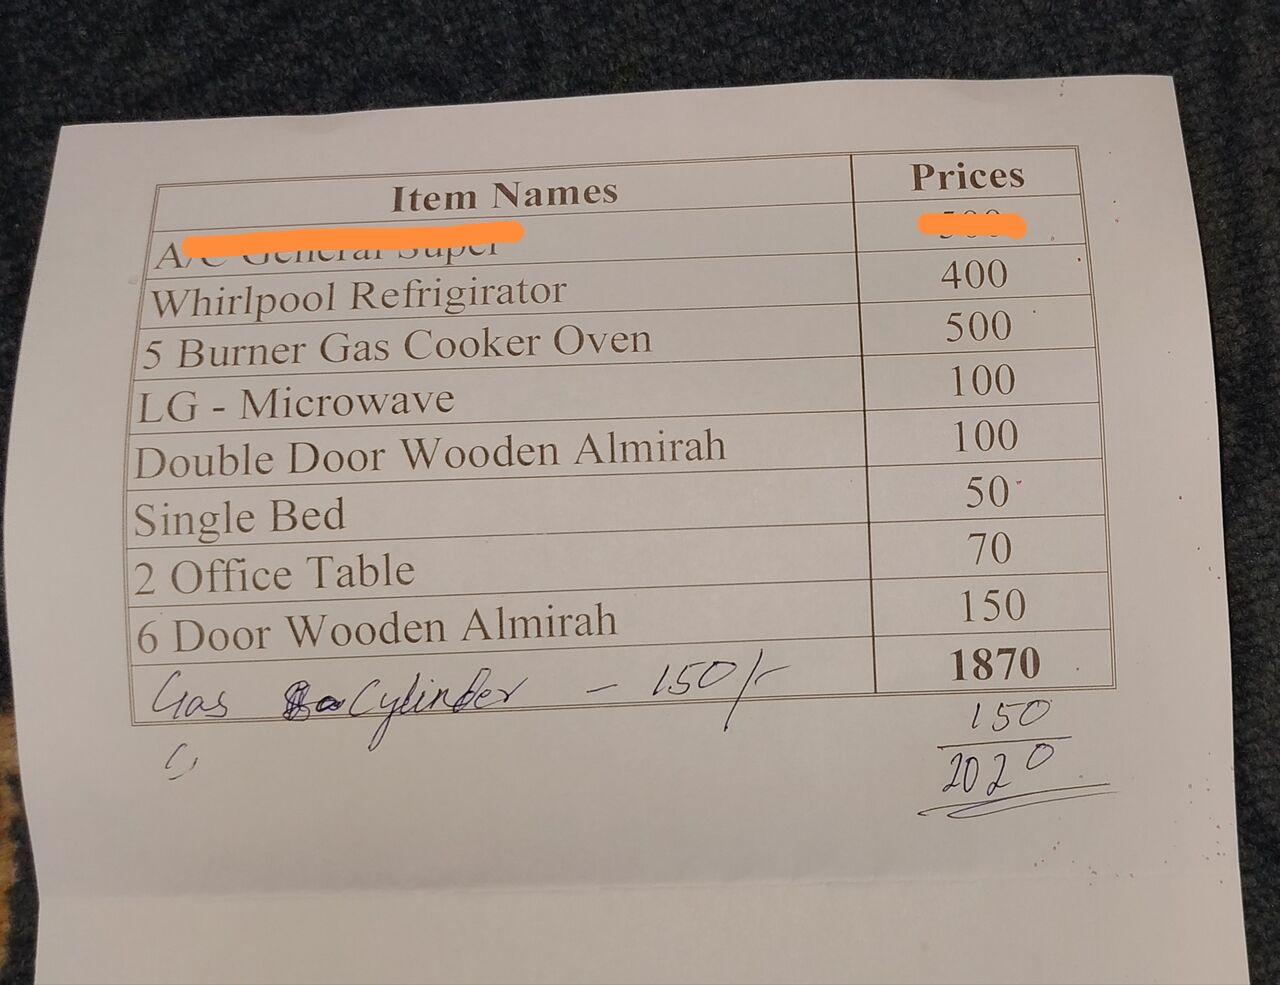 Item Names Prices
A/C General Super 500
Whirlpool Refrigirator 400
5 Burner Gas Cooker Oven 500
LG - Microwave 100
Double Door Wooden Almirah 100
Single Bed 50
2 Office Table 70
6 Door Wooden Almirah 150
1870
Gas Cylinder - 150/-
150
2020